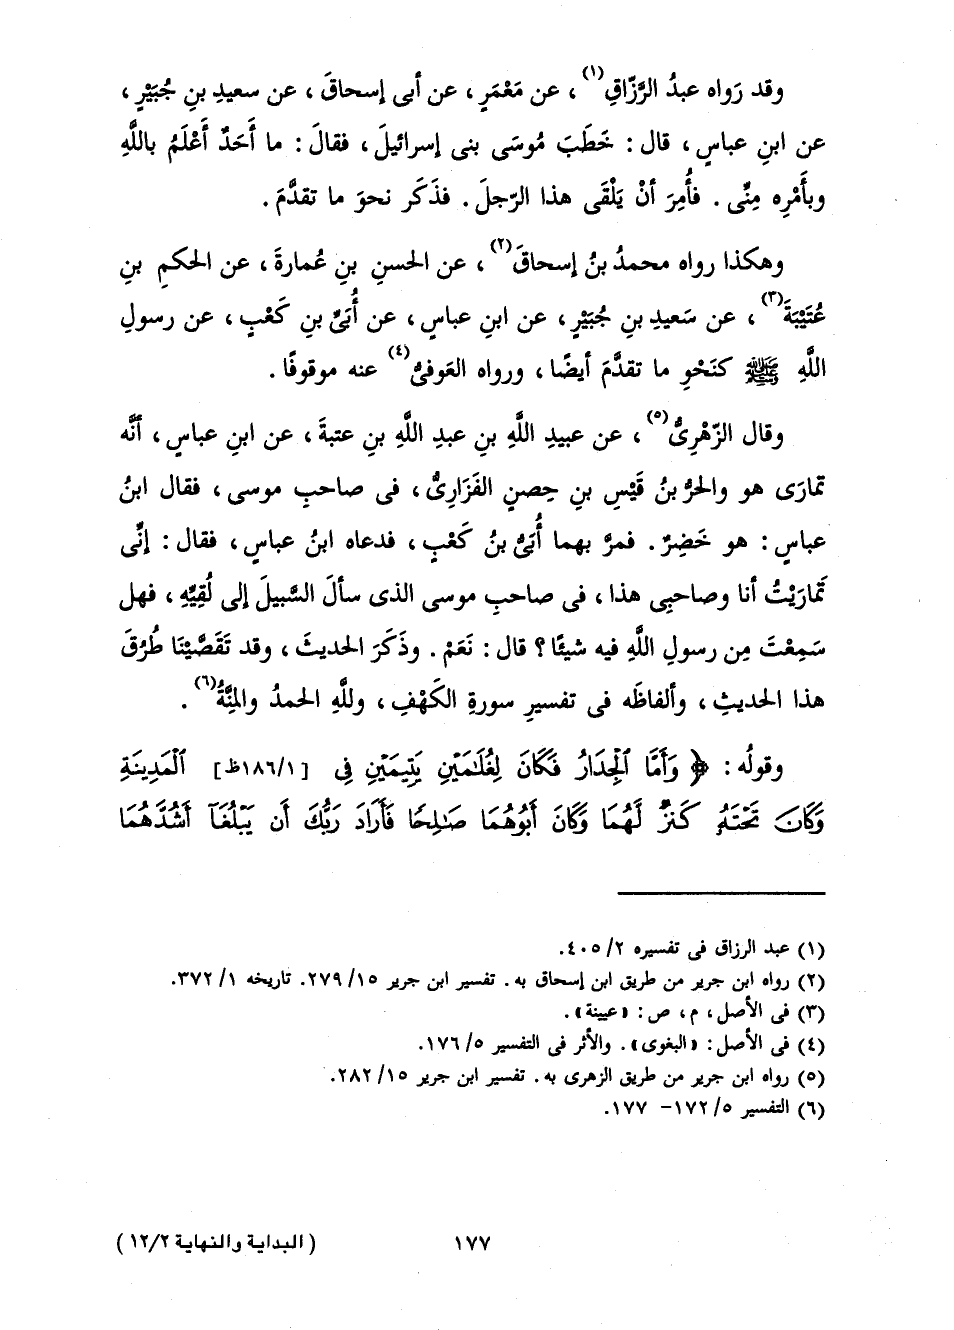 وقد رَواه عبدُ الرَّزّاقِ(١)، عن مَعْمَرٍ، عن أبى إسحاقَ، عن سعيدِ بنِ جُبَيْرٍ،
عن ابنِ عباسٍ، قال: خَطَبَ مُوسَى بنى إسرائيلَ، فقالَ: ما أَحَدٌ أَعْلَمُ باللَّهِ
وبأَمْرِه مِنِّى. فأُمِرَ أنْ يَلْقَى هذا الرّجلَ. فذَكَر نحوَ ما تقدَّمَ.
وهكذا رواه محمدُ بنُ إسحاقَ(٢)، عن الحسنِ بنِ عُمارةَ، عن الحكمِ بنِ
عُتَيْبَةَ(٣)، عن سَعيدِ بنِ جُبَيْرٍ، عن ابنِ عباسٍ، عن أُبَىِّ بنِ كَعْبٍ، عن رسولِ
اللَّهِ ﷺ كنَحْوِ ما تقدَّمَ أيضًا، ورواه العَوفىُّ(٤) عنه موقوفًا.
وقال الزّهْرِىُّ(٥)، عن عبيدِ اللَّهِ بنِ عبدِ اللَّهِ بنِ عتبةَ، عن ابنِ عباسٍ، أنَّه
تمارَى هو والحرُّ بنُ قَيْسِ بنِ حِصنٍ الفَزَارِىُّ، فى صاحبِ موسى، فقال ابنُ
عباسٍ: هو خَضِرٌ. فمرَّ بهما أُبَىُّ بنُ كَعْبٍ، فدعاه ابنُ عباسٍ، فقال: إنِّى
تَمارَيْتُ أنا وصاحبِى هذا، فى صاحبِ موسى الذى سألَ السَّبيلَ إلى لُقِيِّهِ، فهل
سَمِعْتَ مِن رسولِ اللَّهِ فيه شيئًا؟ قال: نَعَمْ. وذَكَرَ الحديثَ، وقد تَقَصَّيْنَا طُرُقَ
هذا الحديثِ، وألفاظَه فى تفسيرِ سورةِ الكَهْفِ، وللَّهِ الحمدُ والمِنَّةُ(٦).
وقولُه: ﴿وَأَمَّا ٱلْجِدَارُ فَكَانَ لِغُلَٰمَيْنِ يَتِيمَيْنِ فِى [١/١٨٦ظ] ٱلْمَدِينَةِ
وَكَانَ تَحْتَهُۥ كَنزٌ لَّهُمَا وَكَانَ أَبُوهُمَا صَٰلِحًا فَأَرَادَ رَبُّكَ أَن يَبْلُغَآ أَشُدَّهُمَا
(١) عبد الرزاق فى تفسيره ٢/ ٤٠٥.
(٢) رواه ابن جرير من طريق ابن إسحاق به. تفسير ابن جرير ١٥/ ٢٧٩. تاريخه ١/ ٣٧٢.
(٣) فى الأصل، م، ص: «عيينة».
(٤) فى الأصل: «البغوى». والأثر فى التفسير ٥/ ١٧٦.
(٥) رواه ابن جرير من طريق الزهرى به. تفسير ابن جرير ١٥/ ٢٨٢.
(٦) التفسير ٥/ ١٧٢- ١٧٧.
١٧٧ (البداية والنهاية ١٢/٢)